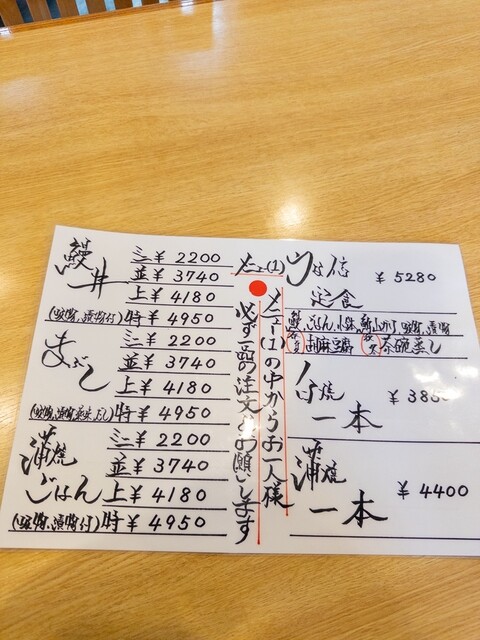 メニュー(1)
鰻丼
ミニ ¥ 2200
並 ¥ 3740
上 ¥ 4180
特 ¥ 4950
(吸物、漬物付)
まぶし
ミニ ¥ 2200
並 ¥ 3740
上 ¥ 4180
特 ¥ 4950
蒲焼
ごはん
ミニ ¥ 2200
並 ¥ 3740
上 ¥ 4180
特 ¥ 4950
(吸物、漬物付)
メニュー(1)の中からお一人様
必ず一品の注文をお願いします
定食
¥ 5280
鰻、ごはん、小鉢、
吸物、漬物
胡麻豆腐
茶碗蒸し
白焼
一本
蒲焼
一本
¥ 4400